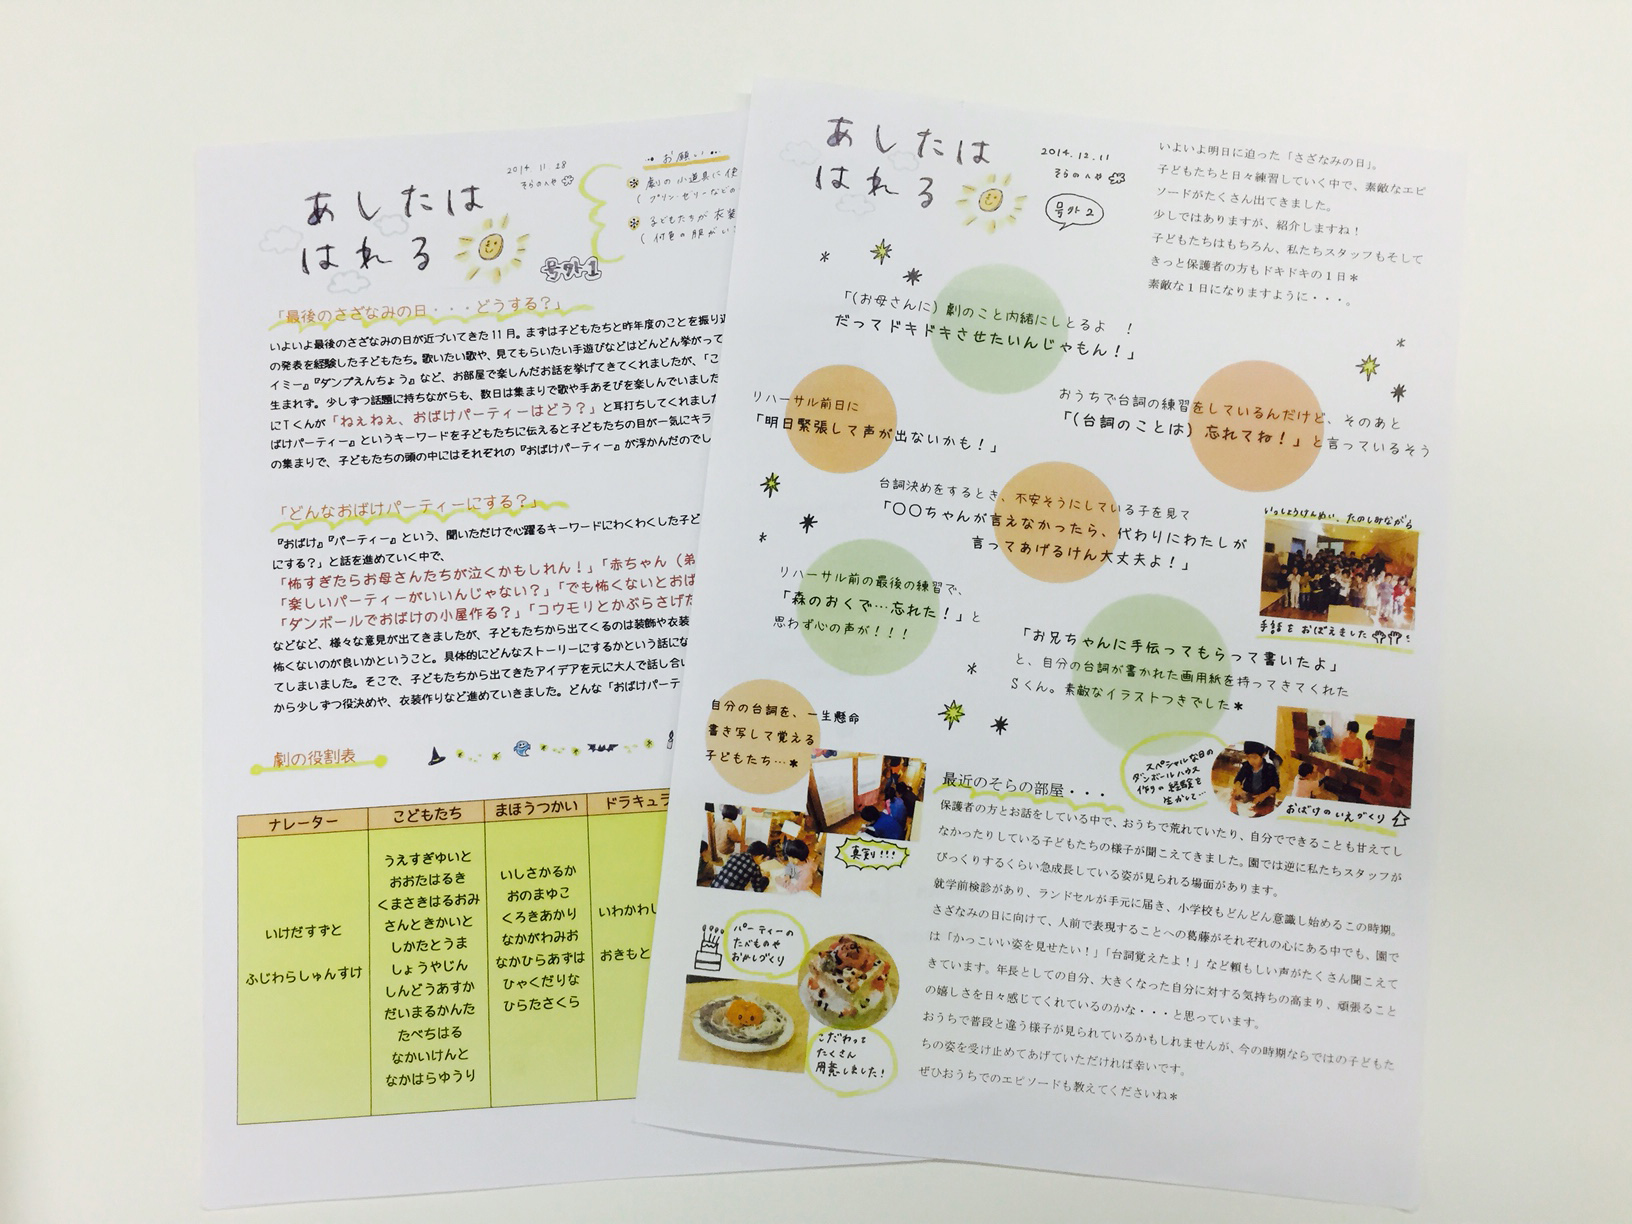 あしたは
はれる
2014.11.28
そらのへや
号外1
お願い
劇の小道具に使
(プリン・ゼリーなどの
子どもたちが衣装
「最後のさざなみの日・・・どうする？」
いよいよ最後のさざなみの日が近づいてきた11月。まずは子どもたちと昨年度のことを振り返
の発表を経験した子どもたち。歌いたい歌や、見てもらいたい手遊びなどはどんどん挙がって
イミー』『ダンプえんちょう』など、お部屋で楽しんだお話を挙げてきてくれましたが、「こ
生まれず。少しずつ話題に持ちながらも、数日は集まりで歌や手あそびを楽しんでいました
にTくんが「ねぇねぇ、おばけパーティーはどう？」と耳打ちしてくれました
ばけパーティー』というキーワードを子どもたちに伝えると子どもたちの目が一気にキラ
の集まりで、子どもたちの頭の中にはそれぞれの『おばけパーティー』が浮かんだのでし
「どんなおばけパーティーにする？」
『おばけ』『パーティー』という、聞いただけで心躍るキーワードにわくわくした子ど
にする？」と話を進めていく中で、
「怖すぎたらお母さんたちが泣くかもしれん！」「赤ちゃん（弟
「楽しいパーティーがいいんじゃない？」「でも怖くないとおば
「ダンボールでおばけの小屋作る？」「コウモリとかぶらさげた
などなど、様々な意見が出てきましたが、子どもたちから出てくるのは装飾や衣装
怖くないのが良いかということ。具体的にどんなストーリーにするかという話にな
てしまいました。そこで、子どもたちから出てきたアイデアを元に大人で話し合い
から少しずつ役決めや、衣装作りなど進めていきました。どんな「おばけパーテ
劇の役割表
ナレーター
いけだすずと
ふじわらしゅんすけ
こどもたち
うえすぎゆいと
おおたはるき
くまさきはるおみ
さんときかいと
しかたとうま
しょうやじん
しんどうあすか
だいまるかんた
たべちはる
なかいけんと
なかはらゆうり
まほうつかい
いしさかるか
おのまゆこ
くろきあかり
なかがわみお
なかひらあずは
ひゃくだりな
ひらたさくら
ドラキュラ
いわかわし
おきもと
あしたは
はれる
2014.12.11
そらのへや
号外2
いよいよ明日に迫った「さざなみの日」。
子どもたちと日々練習していく中で、素敵なエピ
ソードがたくさん出てきました。
少しではありますが、紹介しますね！
子どもたちはもちろん、私たちスタッフもそして
きっと保護者の方もドキドキの１日＊
素敵な１日になりますように・・・。
「(お母さんに) 劇のこと内緒にしとるよ ！
だってドキドキさせたいんじゃもん！」
リハーサル前日に
「明日緊張して声が出ないかも！」
おうちで台詞の練習をしているんだけど、そのあと
「(台詞のことは) 忘れてね！」と言っているそう
台詞決めをするとき、不安そうにしている子を見て
「〇〇ちゃんが言えなかったら、代わりにわたしが
言ってあげるけん大丈夫よ！」
いっしょうけんめい、たのしみながら
手話をおぼえました
リハーサル前の最後の練習で、
「森のおくで…忘れた！」と
思わず心の声が！！！
「お兄ちゃんに手伝ってもらって書いたよ」
と、自分の台詞が書かれた画用紙を持ってきてくれた
Sくん。素敵なイラストつきでした＊
自分の台詞を、一生懸命
書き写して覚える
子どもたち…＊
真剣!!!
スペシャルな日の
ダンボールハウス
作りの経験を
生かして…
おばけのいえづくり
パーティーの
たべものや
おかしづくり
こだわって
たくさん
用意しました！
最近のそらの部屋・・・
保護者の方とお話をしている中で、おうちで荒れていたり、自分でできることも甘えてし
なかったりしている子どもたちの様子が聞こえてきました。園では逆に私たちスタッフが
びっくりするくらい急成長している姿が見られる場面があります。
就学前検診があり、ランドセルが手元に届き、小学校もどんどん意識し始めるこの時期。
さざなみの日に向けて、人前で表現することへの葛藤がそれぞれの心にある中でも、園で
は「かっこいい姿を見せたい！」「台詞覚えたよ！」など頼もしい声がたくさん聞こえて
きています。年長としての自分、大きくなった自分に対する気持ちの高まり、頑張ること
の嬉しさを日々感じてくれているのかな・・・と思っています。
おうちで普段と違う様子が見られているかもしれませんが、今の時期ならではの子どもた
ちの姿を受け止めてあげていただければ幸いです。
ぜひおうちでのエピソードも教えてくださいね＊